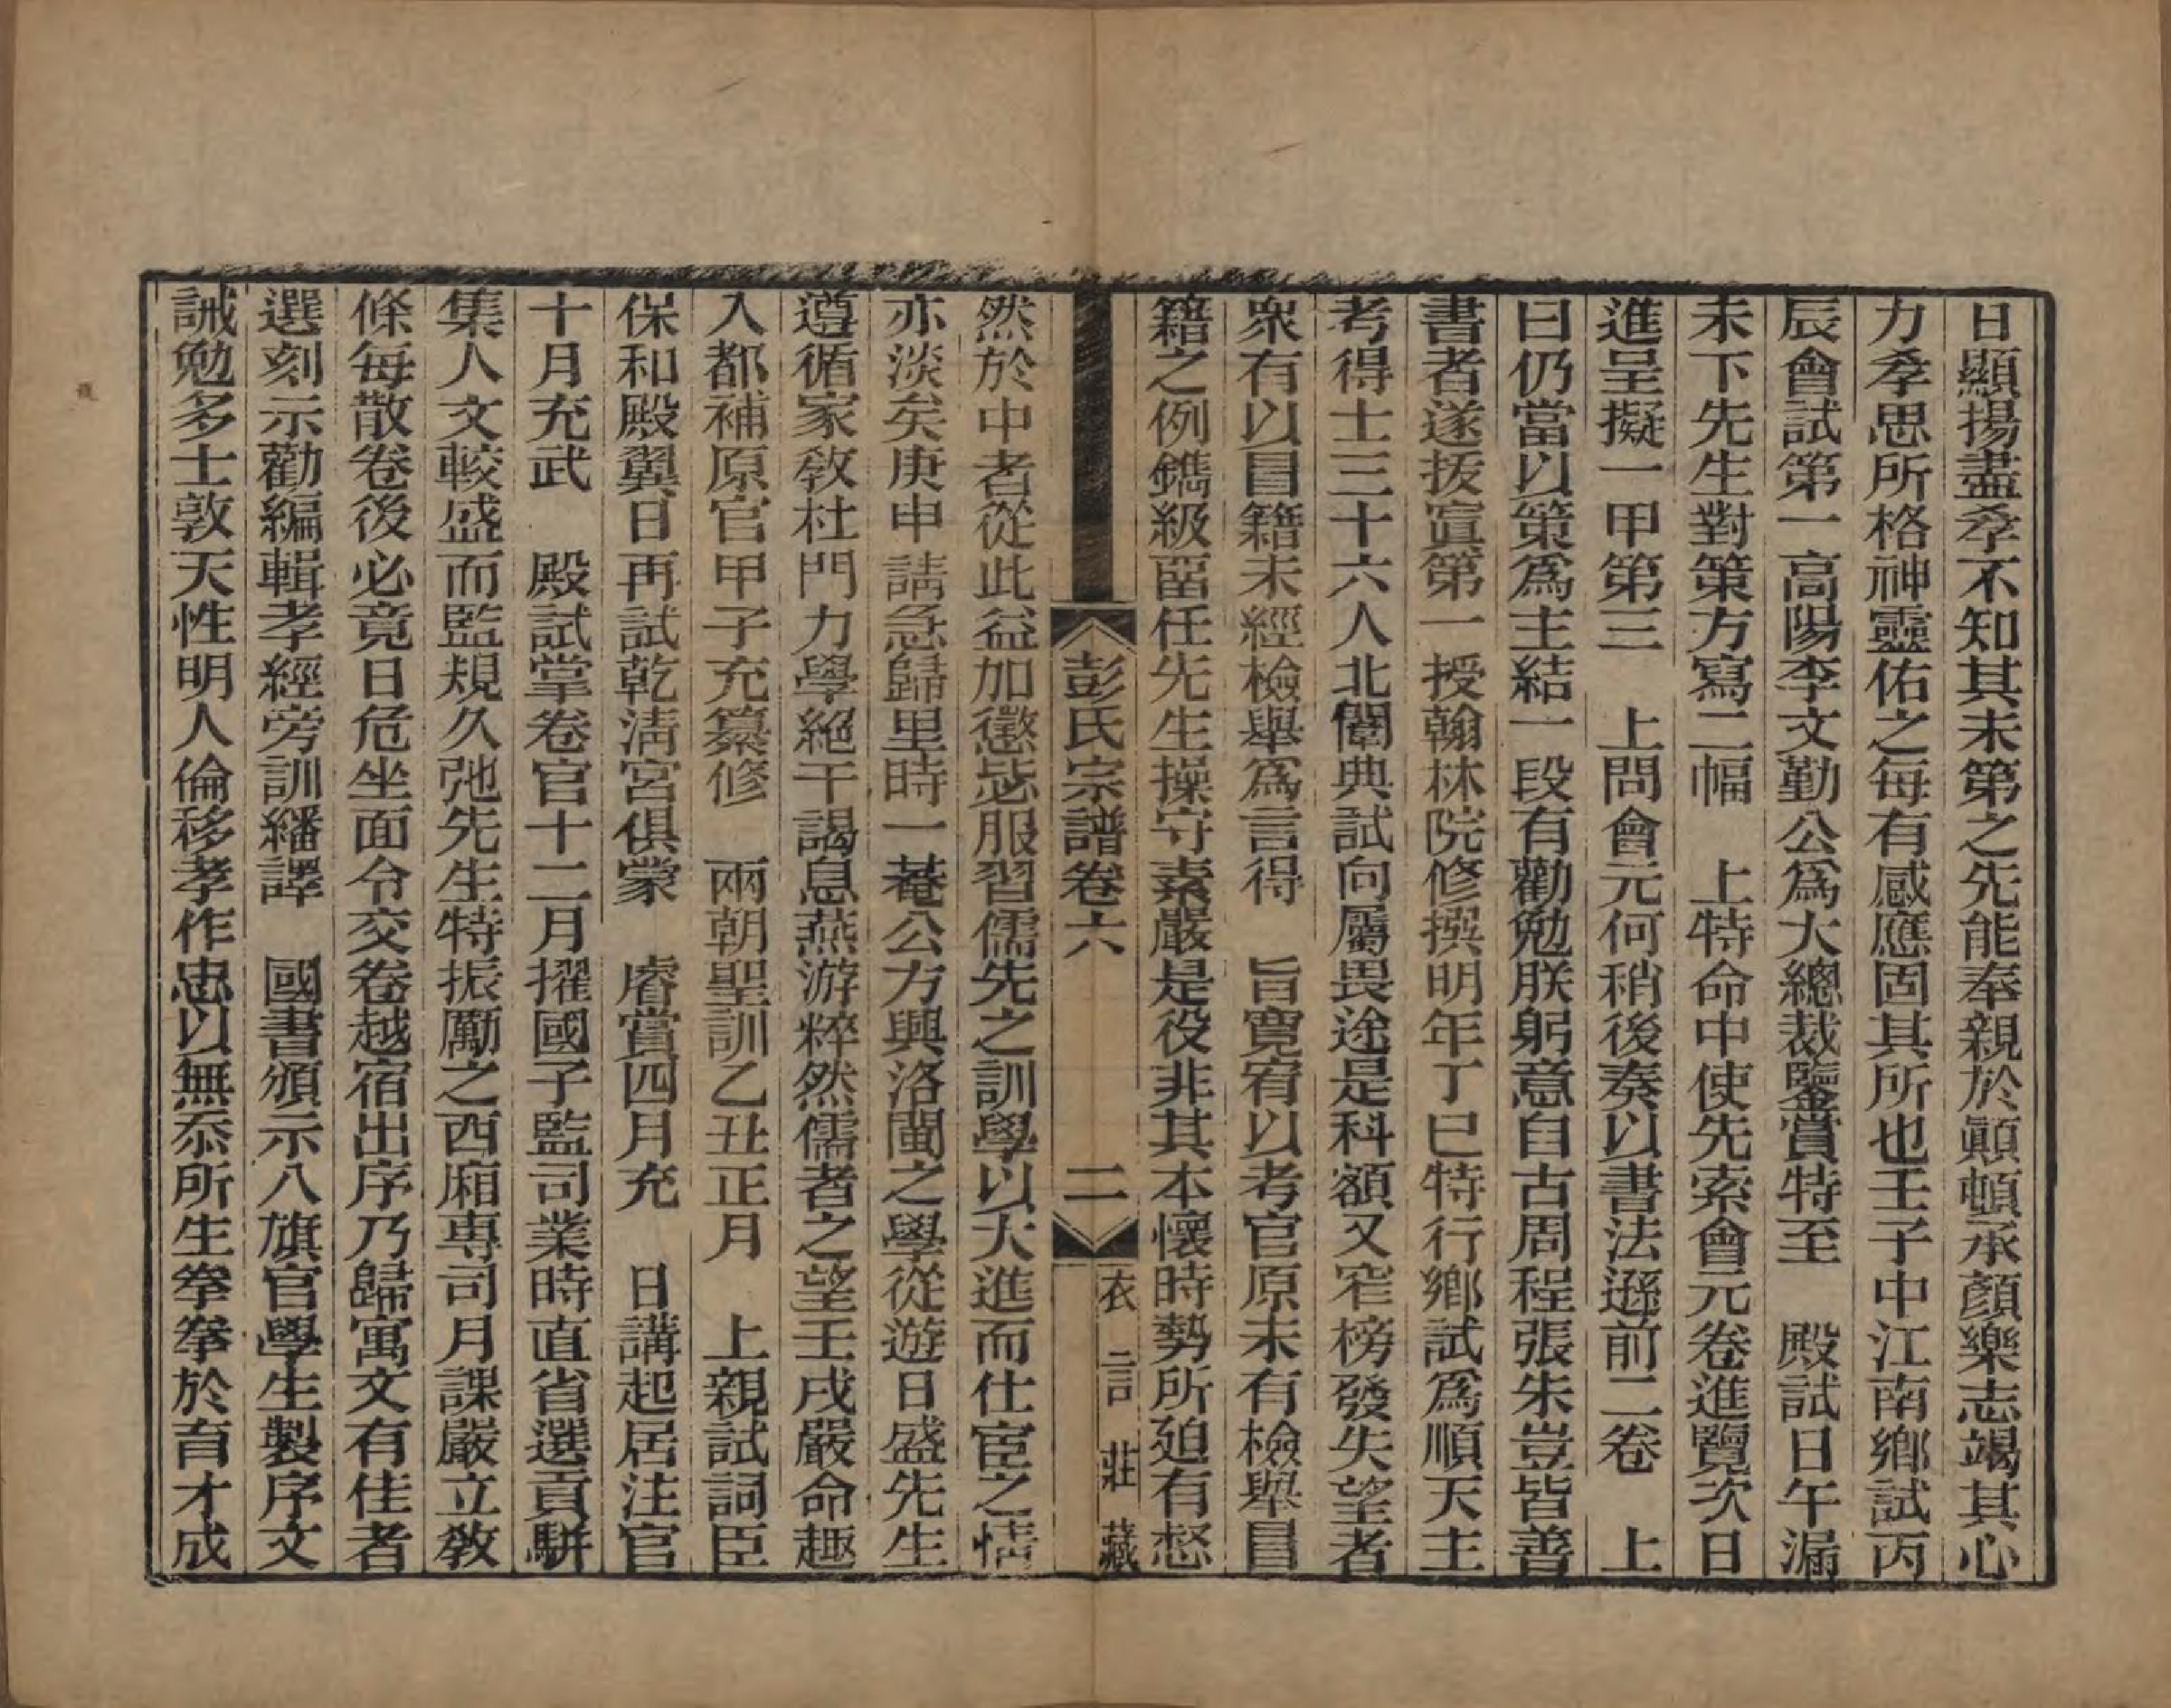 日顯揚盡孝不知其未第之先能奉親於顚頓承顏樂志竭其心
力孝思所格神靈佑之每有感應固其所也壬子中江南鄉試丙
辰會試第一高陽李文勤公爲大總裁鑒賞特至　殿試日午漏
未下先生對策方寫二幅　上特命中使先索會元卷進覽次日
進呈擬一甲第三　上問會元何稍後奏以書法遜前二卷　上
曰仍當以策爲主結一段有勸勉朕躬意自古周程張朱豈皆善
書者遂拔寘第一授翰林院修撰明年丁巳特行鄉試爲順天主
考得士三十六人北闈典試向屬畏途是科額又窄榜發失望者
衆有以冒籍未經檢舉爲言得　旨寬宥以考官原未有檢舉冒
籍之例鐫級畱任先生操守素嚴是役非其本懷時勢所廹有愁
彭氏宗譜卷六　二　衣言莊藏
然於中者從此益加懲毖服習儒先之訓學以大進而仕宦之情
亦淡矣庚申請急歸里時一菴公方興洛閩之學從遊日盛先生
遵循家敎杜門力學絕干謁息燕游粹然儒者之望壬戌嚴命趣
入都補原官甲子充纂修　兩朝聖訓乙丑正月　上親試詞臣
保和殿翼日再試乾淸宮俱蒙　睿賞四月充　日講起居注官
十月充武　殿試掌卷官十二月擢國子監司業時直省選貢騈
集人文較盛而監規久弛先生特振厲之西廂專司月課嚴立敎
條每散卷後必竟日危坐面令交卷越宿出序乃歸寓文有佳者
選刻示勸編輯孝經旁訓繙譯　國書頒示八旗官學生製序文
誡勉多士敦天性明人倫移孝作忠以無忝所生拳拳於育才成